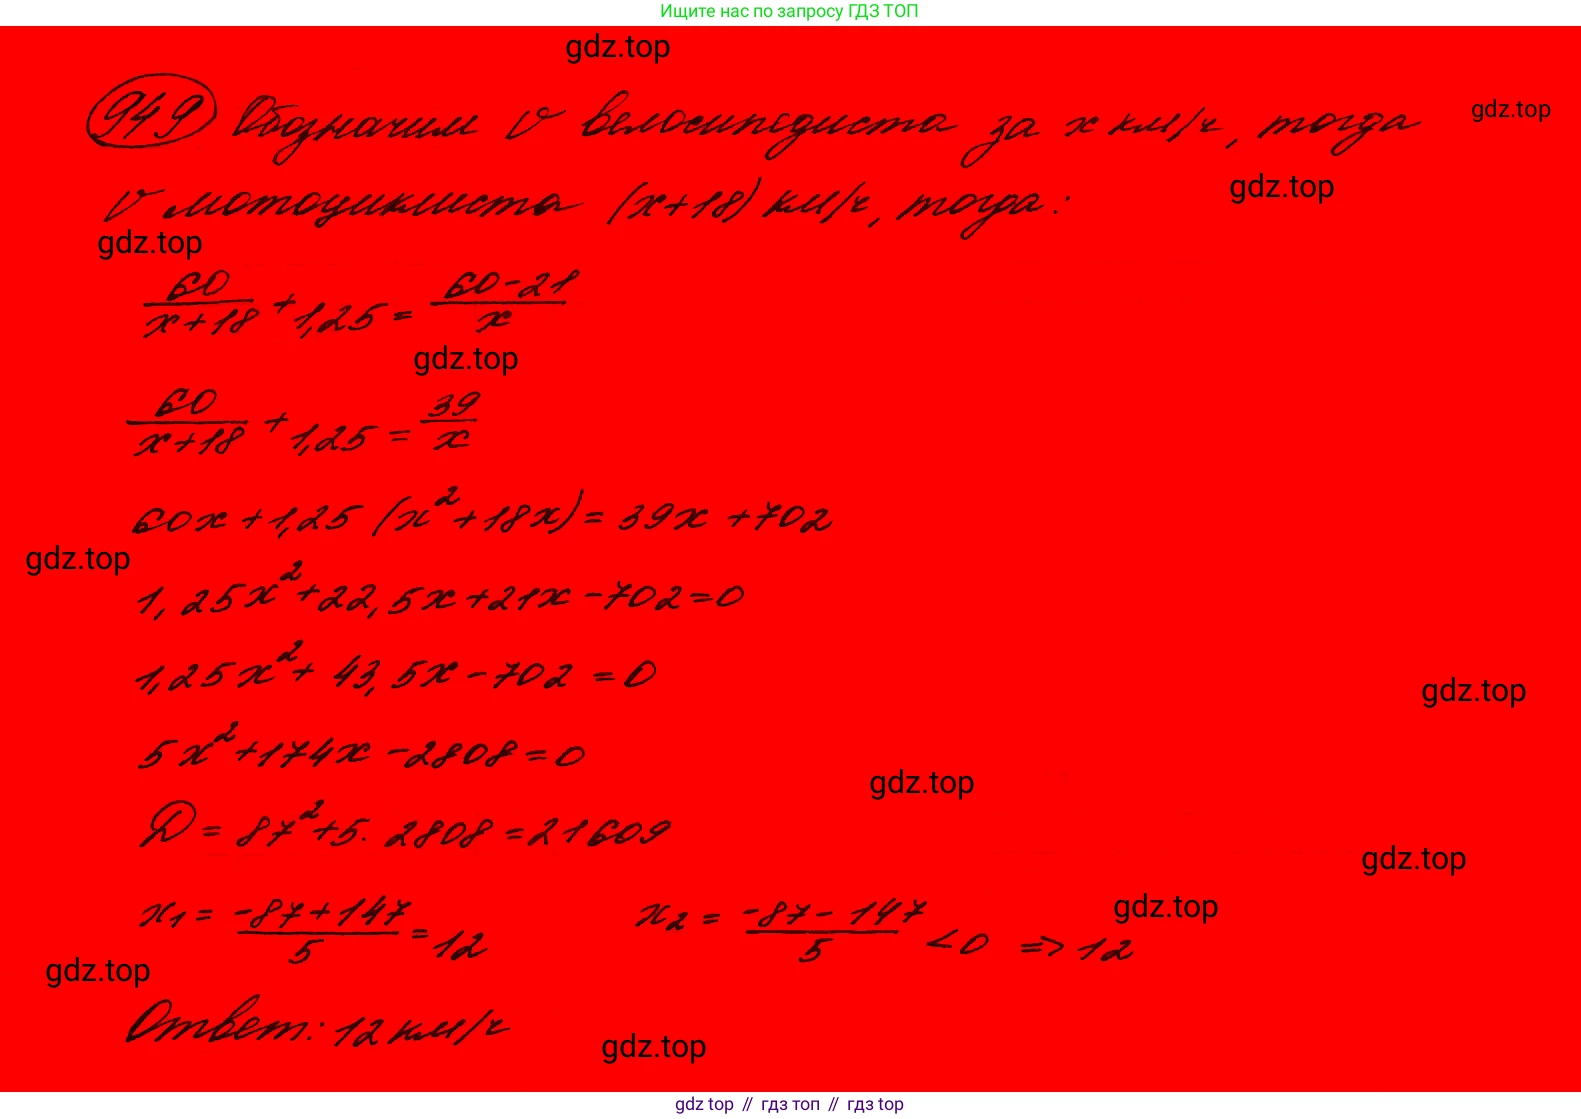 Ищите нас по запросу ГДЗ ТОП
gdz.top
949 Обозначим v велосипедиста за x км/ч, тогда
gdz.top
v мотоциклиста (x+18) км/ч, тогда:
gdz.top
gdz.top
60/(x+18) + 1,25 = (60-21)/x
gdz.top
60/(x+18) + 1,25 = 39/x
60x+1,25 (x²+18x)=39x+702
gdz.top
1,25x²+22,5x+21x-702=0
1,25x²+43,5x-702=0
gdz.top
5x²+174x-2808=0
gdz.top
D=87²+5·2808=21609
gdz.top
x₁ = (-87+147)/5 = 12 x₂ = (-87-147)/5 <0 => 12
gdz.top
gdz.top
Ответ: 12 км/ч
gdz.top
gdz top // гдз топ // гдз top